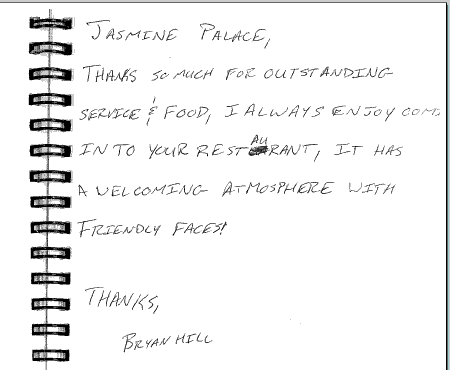 JASMINE PALACE,
THANKS SO MUCH FOR OUTSTANDING
SERVICE & FOOD, I ALWAYS ENJOY
IN TO YOUR RESTAURANT, IT HAS
A WELCOMING ATMOSPHERE WITH
FRIENDLY FACES!
THANKS,
BRYAN HILL